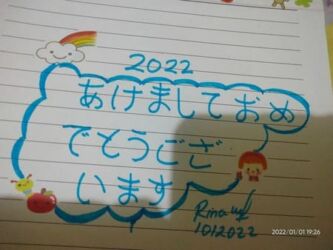 2022
あけましておめ
でとうござ
います
1012022
2022/01/01 19:26